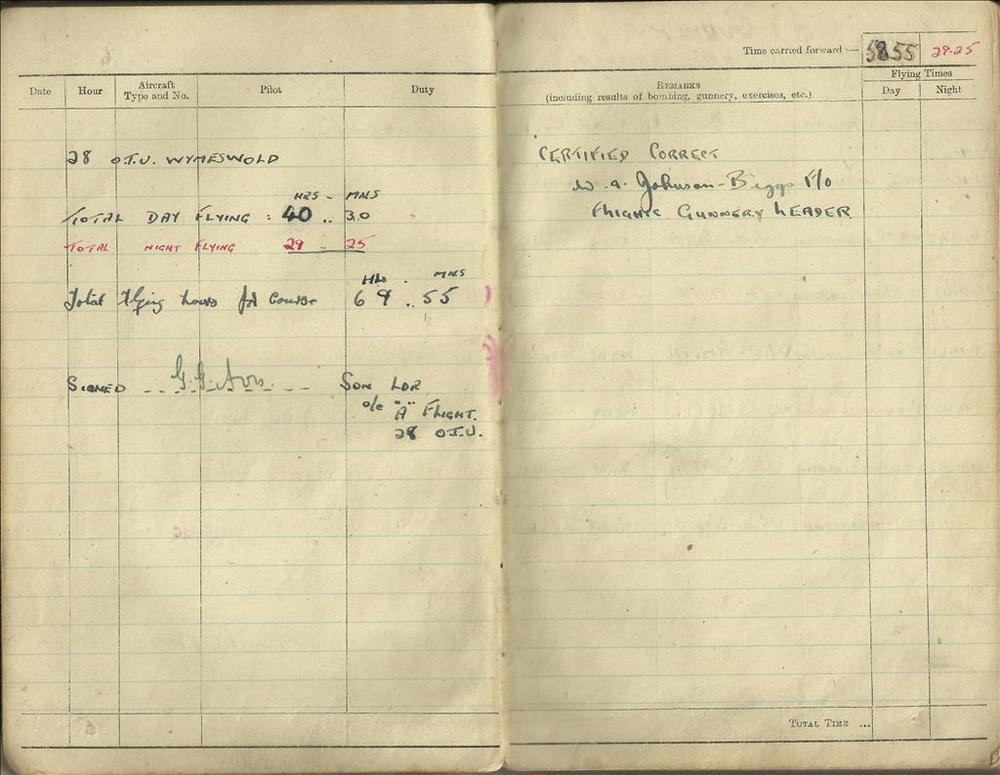 Time carried forward :— 5855 29.25
Date Hour Aircraft Type and No. Pilot Duty
REMARKS (including results of bombing, gunnery, exercises, etc.)
Flying Times
Day Night
28 O.T.U. WYMESWOLD
HRS - MNS
TOTAL DAY FLYING : 40 .. 30
TOTAL NIGHT FLYING 29 .. 25
HRS . MNS
Total flying hours for course 69 .. 55
SIGNED G.G. Avis. SQN LDR
o/c "A" FLIGHT.
28 O.T.U.
CERTIFIED CORRECT
W. A. Johnson-Biggs F/O
FLIGHTS GUNNERY LEADER
TOTAL TIME ...